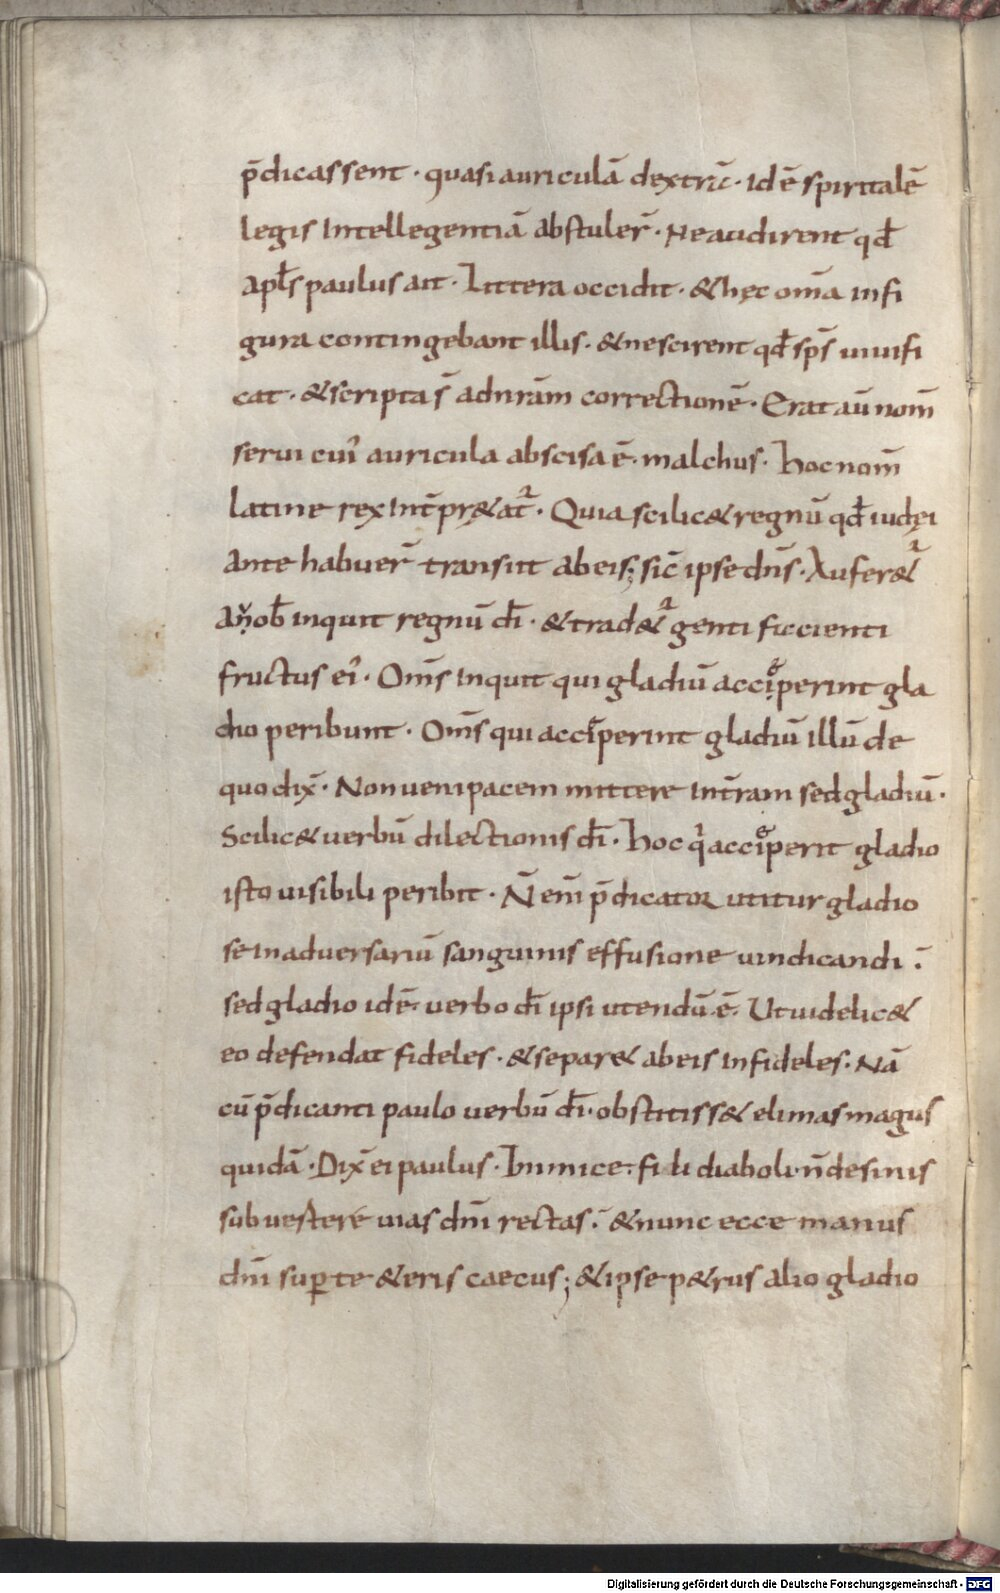 p̄dicassent · quasi auriculā dextrā · id ē spiritalē
legis Intellegentiā abstuler̄ · Ne audirent qđ
apls̄ paulus ait · Littera occidit · & hęc om̄a in fi
gura contingebant illis · & nescirent qđ sps̄ uiuifi
cat · & scripta s̄ ad nr̄am correctionē · Erat aū nom̄
serui cui᾽ auricula abscisa ē · malchus · hoc nom̄
latine rex Int̄pr&at᾽ · Quia scilic& regnū qđ iudęi
ante habuer̄ transiit ab eis; sic̄ ipse dn̄s · Aufer&᾽
a uob̄ inquit regnū dī · & trad&᾽ genti facienti
fructus ei᾽ · Om̄s inquit qui gladiū acceperint gla
dio peribunt · Om̄s qui acceperint gladiū illū de
quo dix̄ · Non ueni pacem mittere In t̄ram sed gladiū ·
Scilic& uerbū dilectionis dī · hoc qi acceperit gladio
isto uisibili peribit · N̄ em̄ p̄dicator utitur gladio
se in aduersariū sanguinis effusione uindicandi ·
sed gladio id ē · uerbo dī ipsi utendū · ē · Ut uidelic&
eo defendat fideles · & separ& ab eis infideles · Nā
cū p̄dicanti paulo uerbū dī · obstitiss& elimas magus
quidā · Dix̄ ei paulus · Inimice · fili diaboli · n̄ desinis
subuertere uias dn̄i rectas · & nunc ecce manus
dn̄i sup te & eris caecus; & ipse p&rus alio gladio
Digitalisierung gefördert durch die Deutsche Forschungsgemeinschaft - DFG